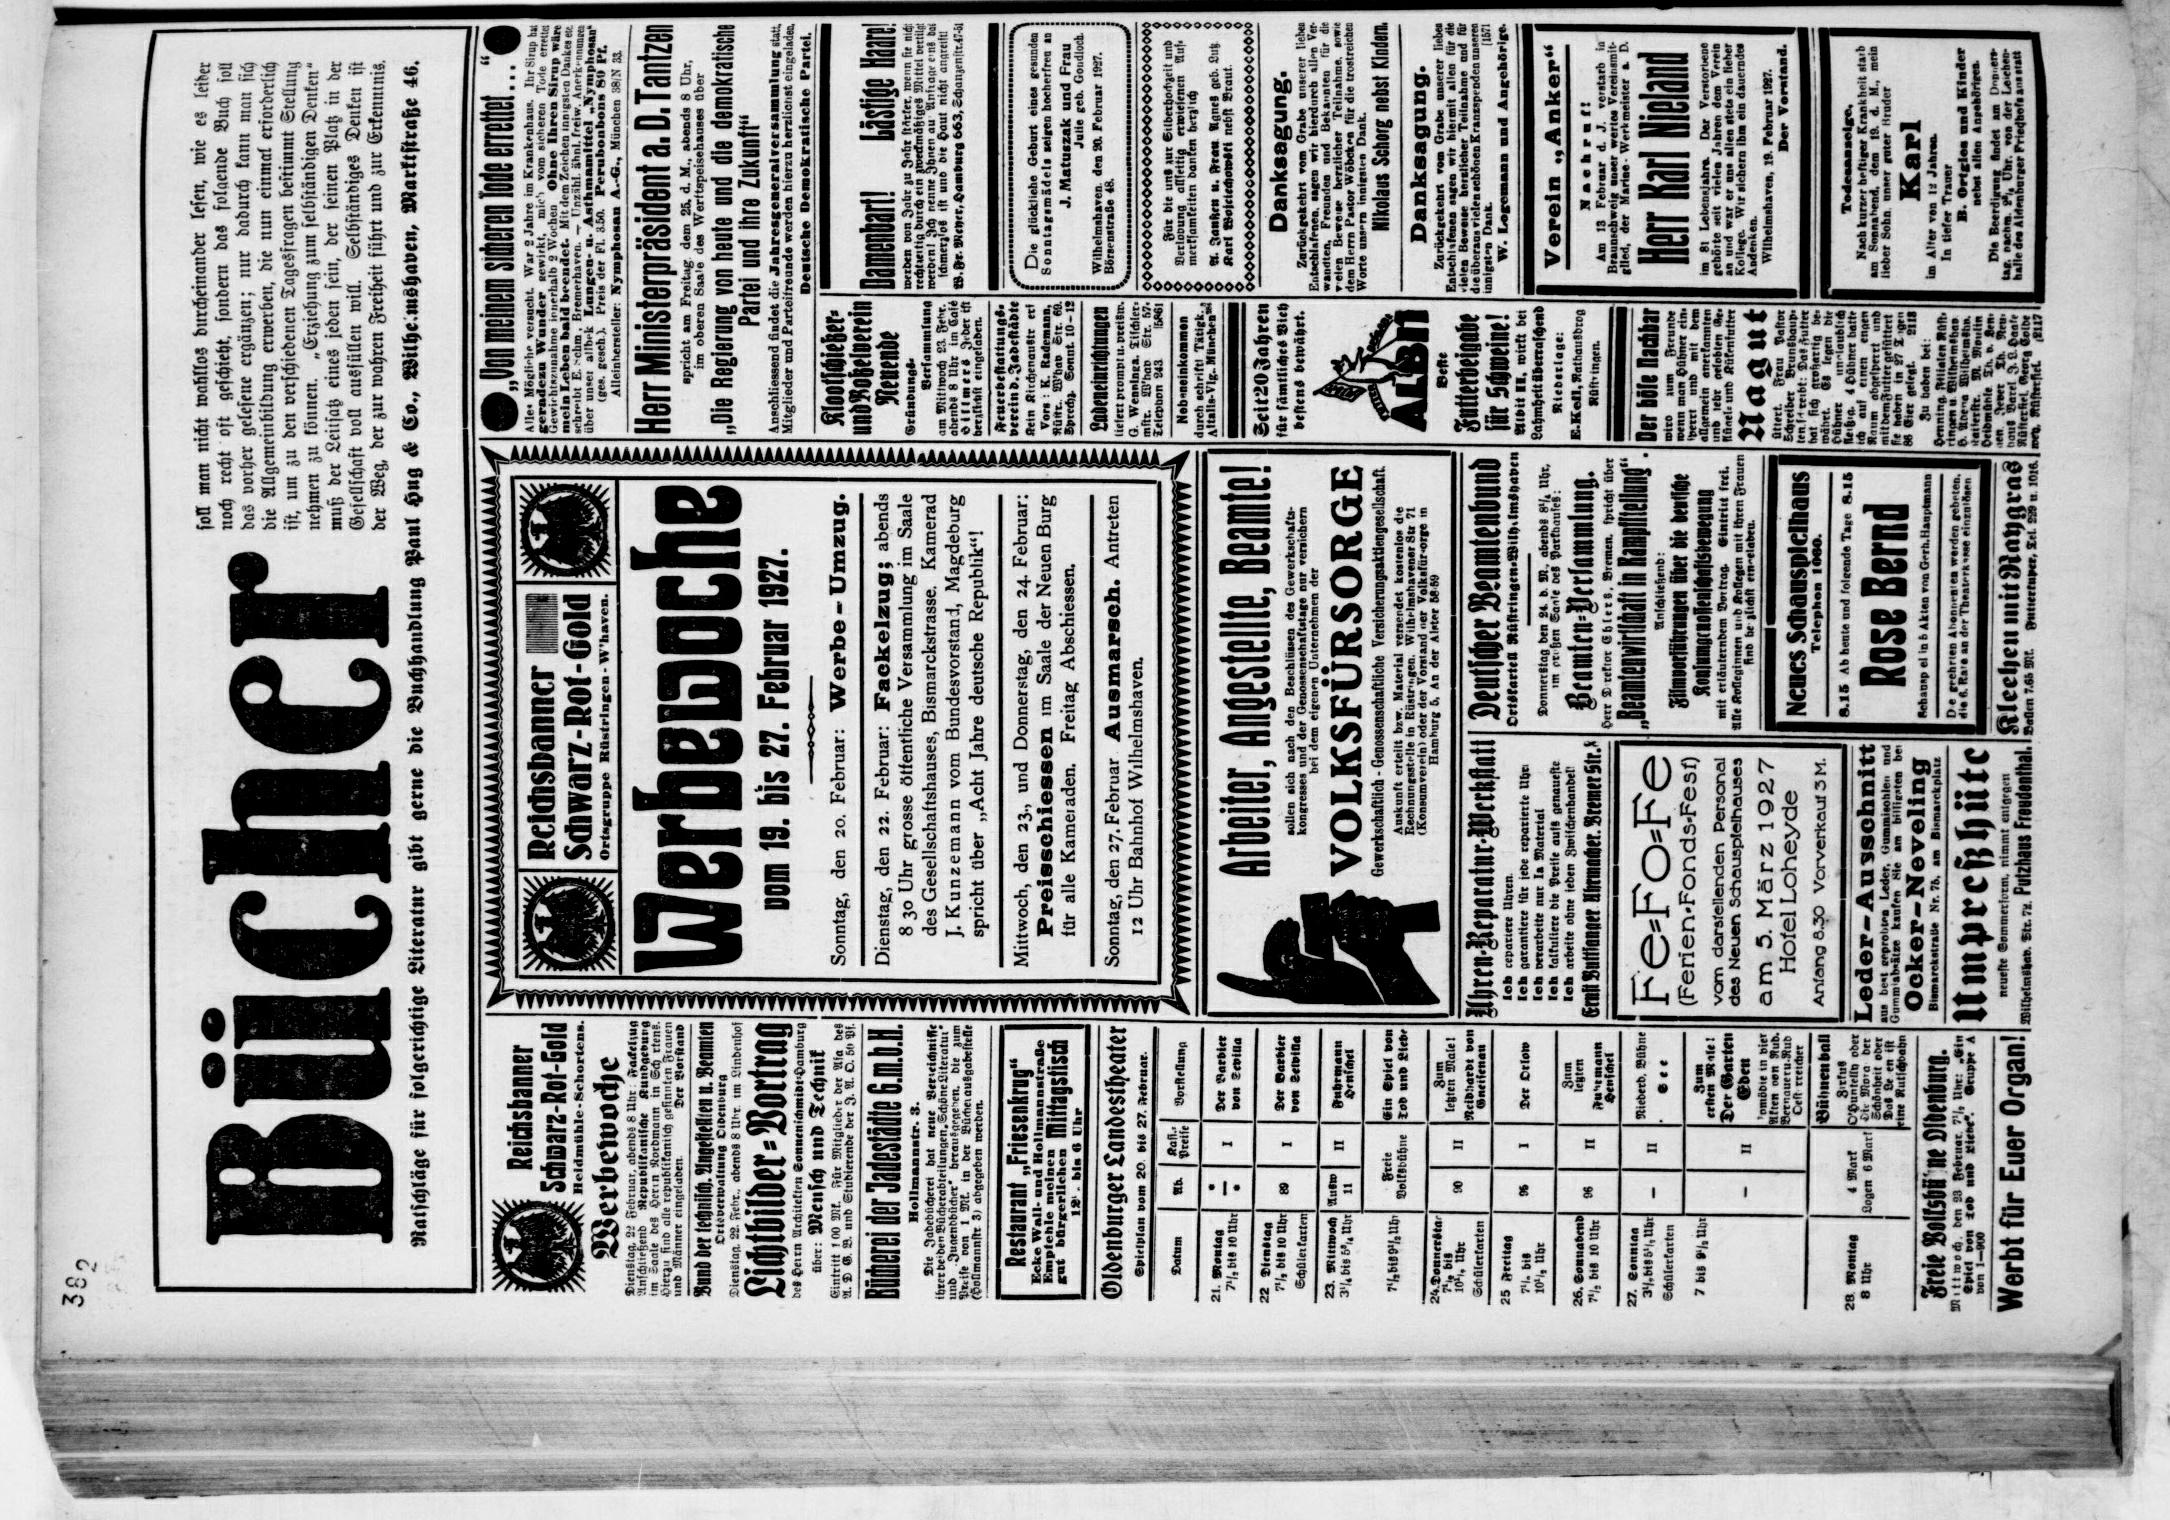 382
Bücher
soll man nicht wahllos durcheinander lesen, wie es leider
noch recht oft geschieht, sondern das folgende Buch soll
das vorher gelesene ergänzen; nur dadurch kann man sich
die Allgemeinbildung erwerben, die nun einmal erforderlich
ist, um zu den verschiedenen Tagesfragen bestimmt Stellung
nehmen zu können. „Erziehung zum selbständigen Denken“
muß der Leitsatz eines jeden sein, der seinen Platz in der
Gesellschaft voll ausfüllen will. Selbständiges Denken ist
der Weg, der zur wahren Freiheit führt und zur Erkenntnis.
Ratschläge für folgerichtige Literatur gibt gerne die Buchhandlung Paul Hug & Co., Wilhelmshaven, Marktstraße 46.
Reichsbanner
Schwarz-Rot-Gold
Heidmühle-Schortens.
Werbewoche
Dienstag, 22 Februar, abends 8 Uhr: Fackelzug
Anschließend Republikanische Kundgebung
im Saale des Herrn Nordmann in Schortens.
Hierzu sind alle republikanisch gesinnten Frauen
und Männer eingeladen. Der Vorstand
Bund der technisch. Angestellten u. Beamten
Ortsverwaltung Oldenburg
Dienstag, 22. Febr., abends 8 Uhr, im Lindenhof
Lichtbilder-Vortrag
des Herrn Architekten Sonnenschmidt-Hamburg
über: Mensch und Technik
Eintritt 1 00 Mk. Für Mitglieder der Afa des
A. D. G. B. und Studierende der J. A. O. 50 Pf.
Bücherei der Jadestädte G.m.b.H.
Hollmannstr. 3.
Die Jadebücherei hat neue Verzeichnisse
ihrer beiden Bücherabteilungen „Schöne Literatur“
und „Jugendbücher“ herausgegeben, die zum
Preise von 1 Mk. in der Bücherausgabestelle
(Hollmannstr. 3) abgegeben werden.
Restaurant „Friesenkrug“
Ecke Wall- und Hollmannstraße
Empfehle meinen Mittagstisch
gut bürgerlichen
12 - bis 6 Uhr
Oldenburger Landestheater
Spielplan vom 20. bis 27. Februar.
Datum Ab. Kass.-Preise Vorstellung
21. Montag
7½ bis 10 Uhr I Der Barbier
von Sevilla
22 Dienstag
7½ bis 10 Uhr
Schülerkarten 89 I Der Barbier
von Sevilla
23. Mittwoch
3¼ bis 5¾ Uhr Ausw
11 II Fuhrmann
Henschel
7½ bis 9½ Uhr Freie
Volksbühne Ein Spiel von
Tod und Liebe
24. Donnerstag
7½ bis
10¼ Uhr
Schülerkarten 90 II Zum
letzten Male!
Neidhardt von
Gneisenau
25 Freitag
7¼ bis
10¼ Uhr 95 I Der Orlow
26. Sonnabend
7½ bis 10 Uhr 96 II Zum
letzten
Fuhrmann
Henschel
27. Sonntag
3½ bis 5½ Uhr
Schülerkarten — II Niederd. Bühne
See
7 bis 9½ Uhr — II Zum
ersten Male!
Der Garten
Eden
Komödie in vier
Akten von Rud.
Bernauer u. Rud
Oesterreicher
28. Montag
8 Uhr 4 Mark
Logen 6 Mark Bühnenball
Freie Volksbühne Oldenburg.
Mittwoch, den 23 Februar, 7½ Uhr: „Ein
Spiel von Tod und Liebe“. Gruppe A
von 1—900
Werbt für Euer Organ!
Reichsbanner
Schwarz-Rot-Gold
Ortsgruppe Rüstringen - W'haven.
Werbewoche
vom 19. bis 27. Februar 1927.
Sonntag, den 20. Februar: Werbe-Umzug.
Dienstag, den 22. Februar: Fackelzug; abends
8 30 Uhr grosse öffentliche Versammlung im Saale
des Gesellschaftshauses, Bismarckstrasse. Kamerad
J. Kunzemann vom Bundesvorstand, Magdeburg
spricht über „Acht Jahre deutsche Republik“!
Mittwoch, den 23., und Donnerstag, den 24. Februar:
Preisschiessen im Saale der Neuen Burg
für alle Kameraden. Freitag Abschiessen.
Sonntag, den 27. Februar Ausmarsch. Antreten
12 Uhr Bahnhof Wilhelmshaven.
Arbeiter, Angestellte, Beamte!
sollen sich nach den Beschlüssen des Gewerkschafts-
kongresses und der Genossenschaftstage nur versichern
bei dem eigenen Unternehmen der
VOLKSFÜRSORGE
Gewerkschaftlich-Genossenschaftliche Versicherungsaktiengesellschaft.
Auskunft erteilt bzw. Material versendet kostenlos die
Rechnungsstelle in Rüstringen, Wilhelmshavener Str 71
(Konsumverein) oder der Vorstand der Volksfürsorge in
Hamburg 5, An der Alster 58-59
Uhren-Reparatur-Werkstatt
Ich repariere Uhren.
Ich garantiere für jede reparierte Uhr.
Ich verarbeite nur Ia Material
Ich kalkuliere die Preise aufs genaueste
Ich arbeite ohne jeden Zwischenhandel!
Fe=Fo=Fe
(Ferien-Fonds-Fest)
vom darstellenden Personal
des Neuen Schauspielhauses
am 5. März 1927
Hotel Loheyde
Anfang 8.30 Vorverkauf 3 M.
Leder-Ausschnitt
aus best erprobten Leder, Gummisohlen und
Gummiabsätze kaufen Sie am billigsten bei
Ocker-Neveling
Bismarckstraße Nr. 75, am Bismarckplatz
Umpreßhüte
neueste Sommerform, nimmt entgegen
Wilhelmshav. Str. 72. Putzhaus Freudenthal.
Deutscher Beamtenbund
Ortskartell Rüstringen-Wilhelmshaven
Donnerstag den 24. d. M., abends 8¼ Uhr,
im großen Saale des Parkhauses:
Beamten-Versammlung.
Herr Direktor Ehlers, Bremen, spricht über
„Beamtenwirtschaft in Kampfstellung“.
Anschließend:
Filmvorführungen über die deutsche
Konsumgenossenschaftsbewegung
mit erläuterndem Vortrag. Eintritt frei.
Alle Kolleginnen und Kollegen mit ihren Frauen
sind herzlichst eingeladen.
Neues Schauspielhaus
Telephon 1060.
8.15 Ab heute und folgende Tage 8.15
Rose Bernd
Schauspiel in 5 Akten von Gerh. Hauptmann
Die geehrten Abonnenten werden gebeten,
die 6. Rate an der Theaterkasse einzulösen
Kleeheu mit Raygras
Ballen 7.65 Mk. Tel. 229 u. 1016.
„Von meinem sicheren Tode errettet...“
Alles Mögliche versucht. War 2 Jahre im Krankenhaus. Ihr Sirup hat
geradezu Wunder gewirkt, mich vom sicheren Tode errettet
Gewichtszunahme innerhalb 2 Wochen Ohne Ihren Sirup wäre
mein Leben bald beendet. Mit dem Zeichen innigsten Dankes etc.
schreibt E. Sehm, Bremerhaven. — Unzähl. ähnl. freiw. Anerkennungen
über unser altbek Lungen- u. Asthmamittel „Nymphosan“
(ges. gesch.). Preis der Fl. 3.50. Perubonbons 80 Pf.
Alleinhersteller: Nymphosan A.-G., München 38/N 33.
Herr Ministerpräsident a. D. Tantzen
spricht am Freitag, dem 25. d. M., abends 8 Uhr,
im oberen Saale des Werftspeisehauses über
„Die Regierung von heute und die demokratische
Partei und ihre Zukunft“
Anschliessend findet die Jahresgeneralversammlung statt.
Mitglieder und Parteifreunde werden hierzu herzlichst eingeladen.
Deutsche Demokratische Partei.
Klootschießer-
und Boßelverein
Neuende
Gründungs-
Versammlung
am Mittwoch 23. Febr.
abends 8 Uhr im Café
Hillmers. Jeder ist
herzlichst eingeladen.
Feuerbestattungs-
verein d. Jadestädte
Kein Kirchenaustr erf
Vors: K. Rademann,
Rüstr., W'hav Str. 69.
Sprechz. Sonnt. 10-12
Ladeneinrichtungen
liefert prompt u. preisw.
G. Wenninga, Tischler-
mstr. W'hav Str. 57.
Telephon 243 [5861
Nebeneinkommen
durch schriftl Tätigk.
Attalis-Vlg. München
Seit 20 Jahren
für sämtliches Vieh
bestens bewährt.
ALBN
Beste
Futterbeigabe
für Schweine!
Albit III, wirkt bei
Lahmheit überraschend
Niederlage:
E. Kofl, Rathausdrog
Rüstringen.
Der böse Nachbar
wird zum Freunde
wenn man Hühner ein-
sperrt und mit dem
allgemein anerkannten
und sehr gelobten Ge-
flügel- und Kükenfutter
Nagut
füttert. Frau Pastor
Damenbart! Lästige Haare!
werden von Jahr zu Jahr stärker, wenn sie nicht
rechtzeitig durch ein zweckmäßiges Mittel vertilgt
werden! Ich nenne Ihnen auf Anfrage eins das
schmerzlos ist und die Haut nicht angreift!
W. Fr. Meyer, Hamburg 663,
Die glückliche Geburt eines gesunden
Sonntagsmädels zeigen hocherfreu an
J. Matuszak und Frau
Julie geb. Goudloch.
Wilhelmshaven, den 20. Februar 1927.
Börsenstraße 48.
Für die uns zur Silberhochzeit und
Verlobung allseitig erwiesenen Auf-
merksamkeiten danken herzlich
A. Janßen u. Frau Agnes geb. Lutz.
Karl Wojciechowski nebst Braut.
Danksagung.
Zurückgekehrt vom Grabe unserer lieben
Entschlafenen, sagen wir hierdurch allen Ver-
wandten, Freunden und Bekannten für die
vielen Beweise herzlicher Teilnahme, sowie
dem Herrn Pastor Wöbcken für die trostreichen
Worte unsern innigsten Dank.
Nikolaus Schorg nebst Kindern.
Danksagung.
Zurückgekehrt vom Grabe unserer lieben
Entschlafenen sagen wir hiermit allen für die
vielen Beweise herzlicher Teilnahme und für
die überaus vielen schönen Kranzspenden unseren
innigsten Dank. [1571
W. Logemann und Angehörige.
Verein „Anker“
Nachruf!
Am 13 Februar d. J. verstarb in
Braunschweig unser wertes Vereinsmit-
glied, der Marine-Werkmeister a. D.
Herr Karl Nieland
im 81 Lebensjahre. Der Verstorbene
gehörte seit vielen Jahren dem Verein
an und war er uns allen stets ein lieber
Kollege. Wir sichern ihm ein dauerndes
Andenken.
Wilhelmshaven, 19. Februar 1927.
Der Vorstand.
Todesanzeige.
Nach kurzer heftiger Krankheit starb
am Sonnabend, dem 19. d. M., mein
lieber Sohn, unser guter Bruder
Karl
im Alter von 12 Jahren.
In tiefer Trauer
B. Ortgies und Kinder
nebst allen Angehörigen.
Die Beerdigung findet am Donners-
tag, nachm. 2¾ Uhr, von der Leichen-
halle des Aldenburger Friedhofs aus statt